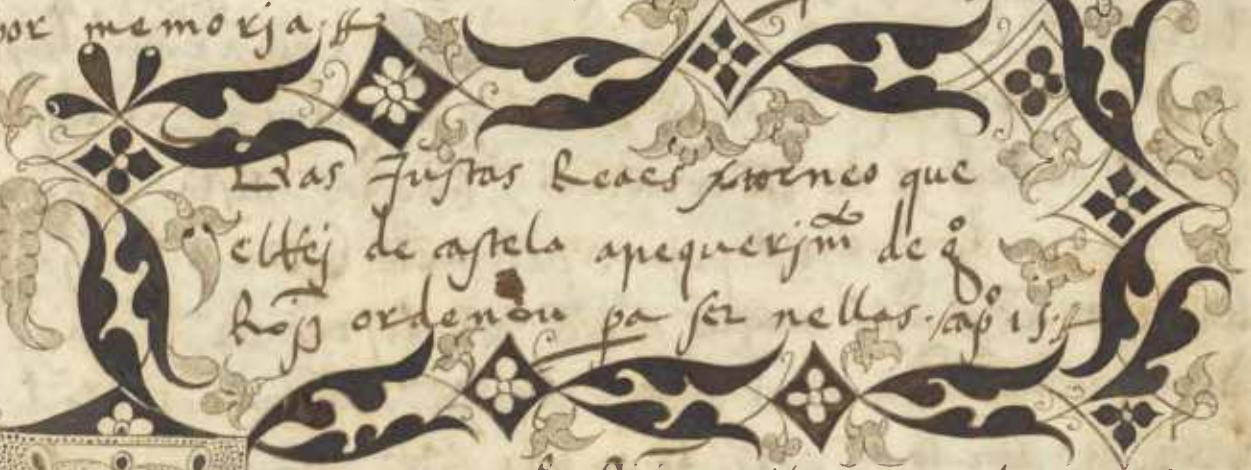 por memorja
Das Justas Reaes & torneo que
elRej de castela a requerjm̃to de gº
Roĩz ordenou pa ser nellas. capº 15.